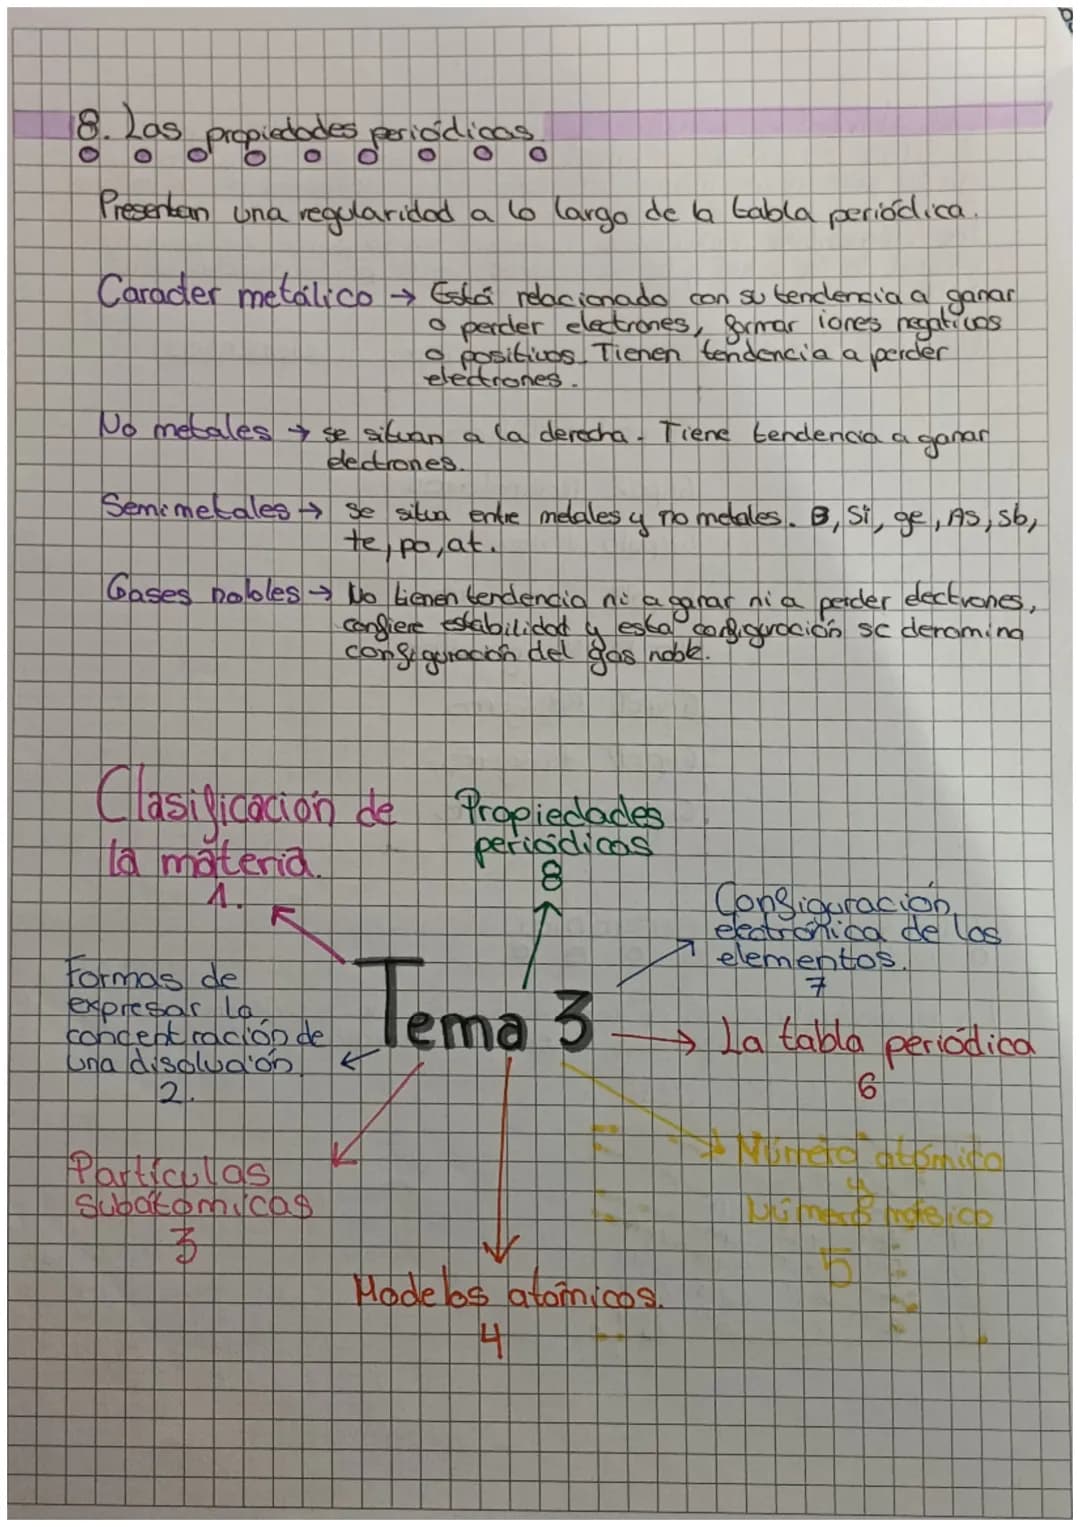 8. Las propiedades periódicas.
Presentan una regularidad a lo largo de la tabla periódica.
Caracter metálico → Está relacionado con su tendencia a ganar
o perder electrones, formar iones negativos
o positivos. Tienen tendencia a perder
electrones.
No metales → se situan a la derecha. Tiene tendencia a ganar
electrones.
Semimetales → se situa entre metales y no metales. B, Si, ge, As, sb,
te, po, at.
Gases nobles → No tienen tendencia ni a ganar ni a perder electrones,
confiere estabilidad y esta configuración se denomina
configuración del gas noble.
Clasificación de
la materia.
1.
Propiedades
periódicas
8
Configuración
electrónica de los
elementos.
7
Formas de
expresar la
concentración de
una disolución
2.
Tema 3
La tabla periódica
6
Partículas
subatomicas
3
Número atómico
y
Número másico
5
Modelos atómicos.
4